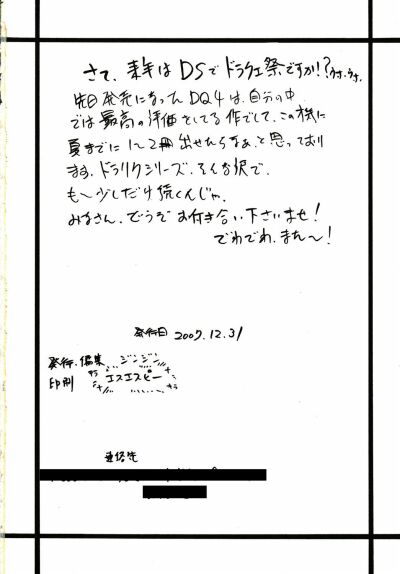 さて、来年はDSでドラクエ祭ですか!?ウホッウホッ
先日発売になったDQ4は、自分の中
では最高の評価をしてる作でして、この機に
夏までに1〜2冊出せたらなぁ、と思っており
ます。ドラリクシリーズ。そんな訳で、
も〜少しだけ続くんじゃ。
みなさん、どうぞお付き合い下さいませ!
でわでわ、また〜!
発行日 2007.12.31
発行・編集 ジンジン
印刷 キラキラ エスエスピー キラキラ
連絡先